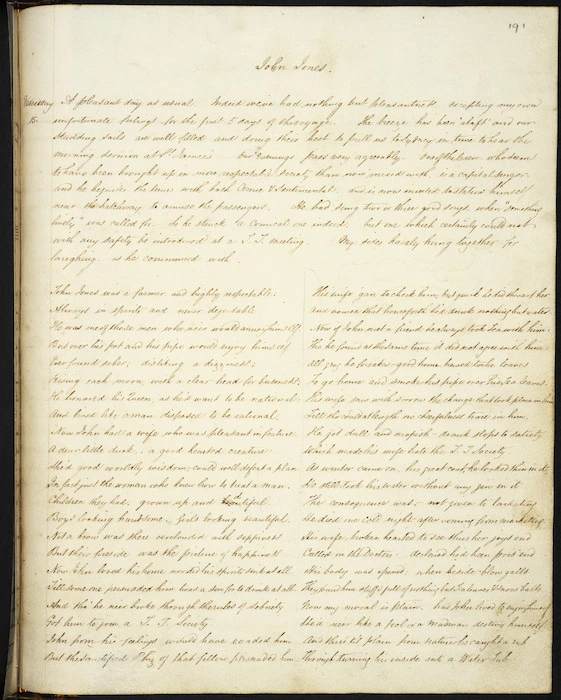 191
John Jones.
Wednesday A pleasant day as usual. Indeed we've had nothing but pleasantness excepting my own
unfortunate feelings for the first 5 days of the voyage. The breeze has been "abaft" and our
studding sails are well filled and doing their best to pull us to Sydney in time to hear the
morning sermon at St James's Our evenings pass very agreeably. One of the men who seems
to have been brought up in more respectable society than now moved with is a capital songster
and he beguiles the time with both Comic & sentimental and is now invited to station himself
near the hatchway to amuse the passengers. He had sung two or three good songs, when "something
lively" was called for. So he struck a Comical one indeed, but one which certainly could not
with any safety be introduced at a T. T. meeting. My sides hardly hung together for
laughing, as he commenced with
John Jones was a farmer and highly respectable;
Always in spirits and never dejectable
He was one of those men who never would annoy himself
But over his pot and his pipe would enjoy himself
Ever found sober; disliking a dizziness;
Rising each morn, with a clear head for business;
He honor'd his Queen, as he'd want to be national
And lived like a man disposed to be rational.
Now John had a wife who was pleasant in feature
A dear little duck, a good hearted creature
She'd good worldly wisdom, could well defeat a plan
In fact just the woman who knew how to treat a man.
Children they had, grown up and dutiful,
Boys looking handsome, Girls looking beautiful,
Not a brow was there overloaded with sappiness
But their fireside was the picture of happiness
Now John loved his home nor did his spirits sink at all
Till some one persuaded him 'twas a sin for to drink at all
And tho' he ne'er broke through the rules of sobriety
Got him to join a T. T. Society
John from his feelings would have evaded him
But the sanctified Phiz of that fellow persuaded him
His wife gan to check him, but quick he did thwart her
And swore that henceforth he'd drink nothing but water
Now if John met a friend he always took Tea with him.
Tho he found at the same time it did not agree with him
All grog he forsakes - good home brewed too he leaves
To go home and smoke his pipe over his Tea leaves.
His wife saw with sorrow the change that took place in him
Till she could at length no cheerfulness trace in him,
He got dull and mopish - drank slops to satiety
Which made his wife hate the T. T. Society
As winter came on, his great coat, he looked thin in it
He still took his water without any gin in it
The consequence was - not given to larketing
He died one cold night after coming from marketing.
His wife, broken hearted to see thus her joys end
Called in the Doctor. declared he'd been poisoned
His body was opened, when beside blown galls
They found him stuff'd full of nothing but Tea leaves & snow balls
Now my moral is plain, tho' John lived to enjoy himself
He died near like a fool or a madman destroy himself
And there tis' plain from nature he caught a rub
Through turning his inside into a Water Tub